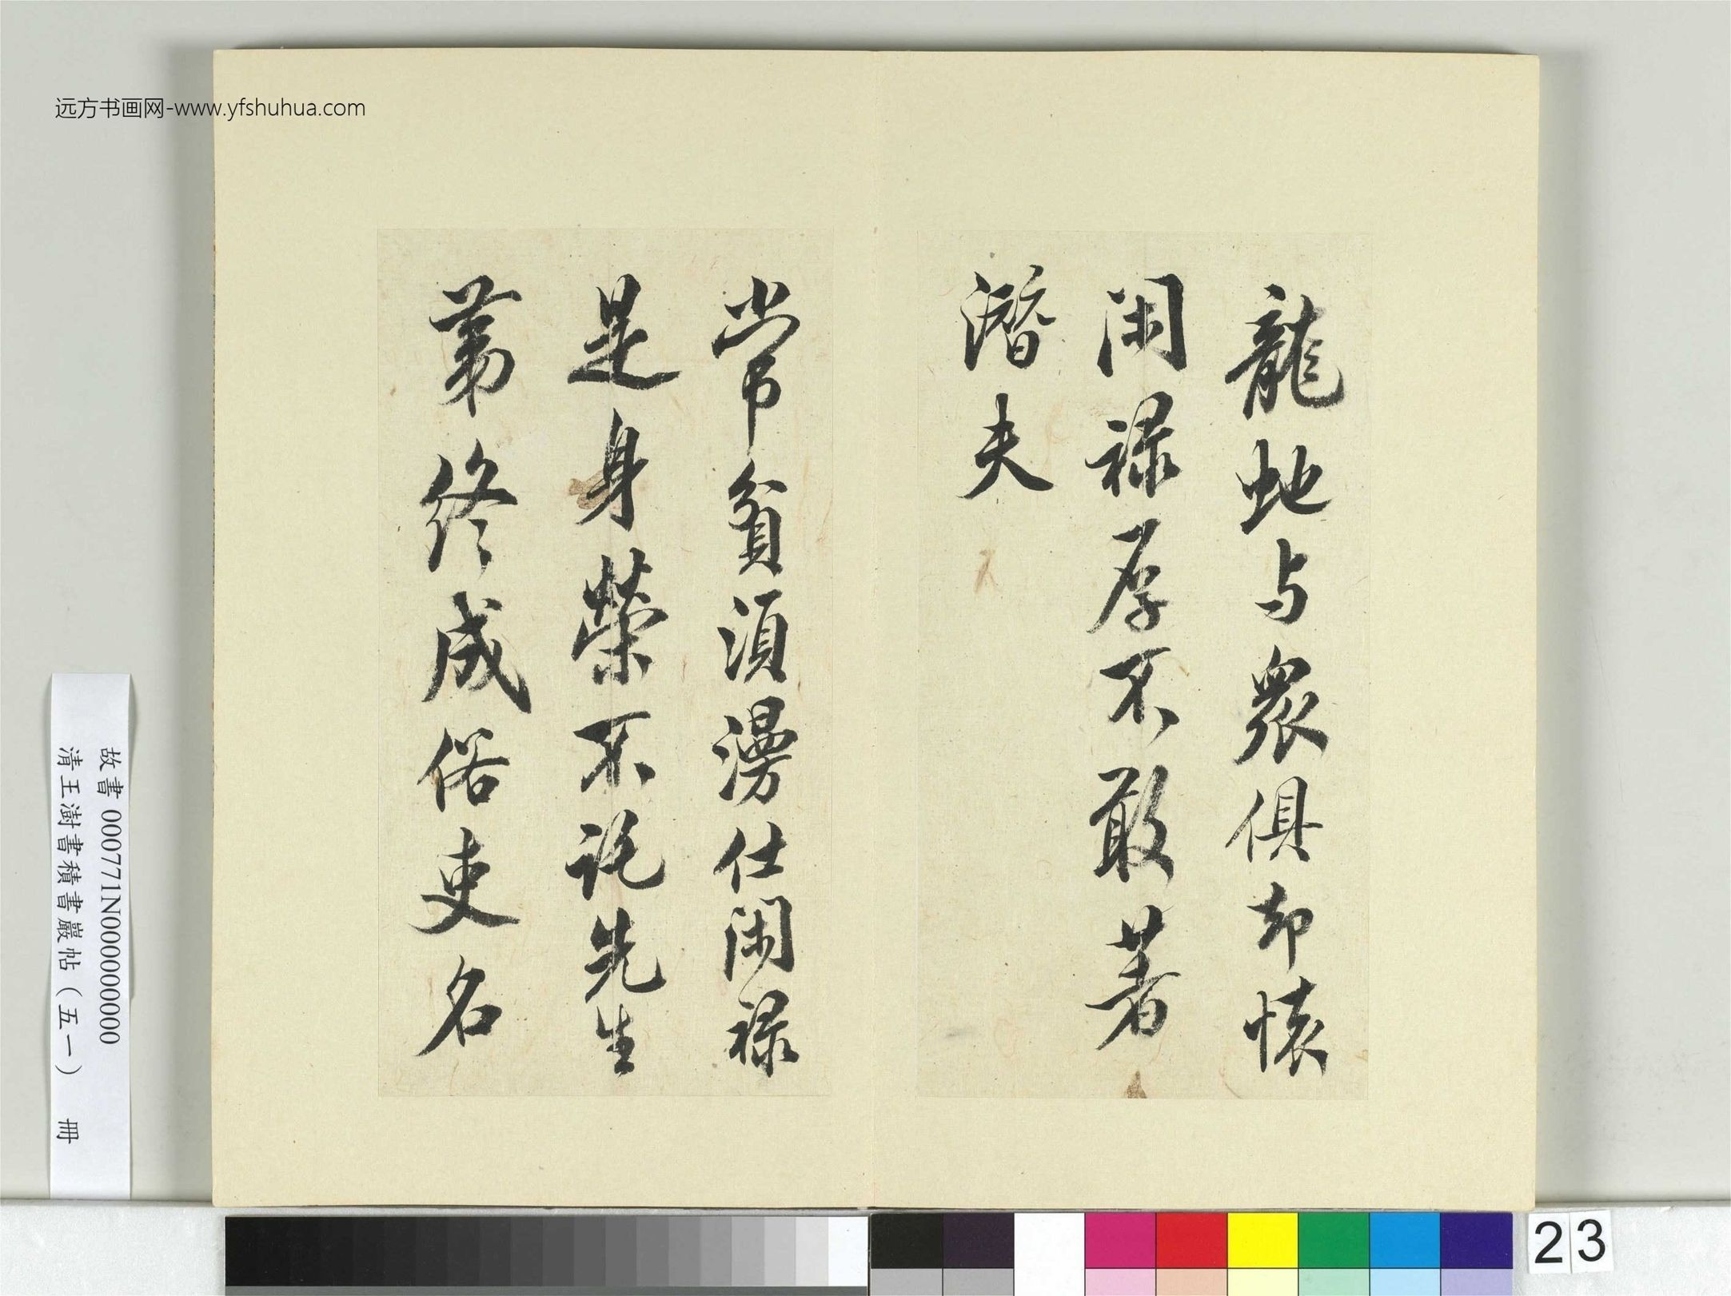 远方书画网-www.yfshuhua.com
龍蛇与衆俱却懐
閑禄厚不敢著
潛夫
常貧須漫仕閑禄
是身榮不託先生
第終成俗吏名
故書000771N000000000
清王澍書積書巖帖(五一) 冊
23